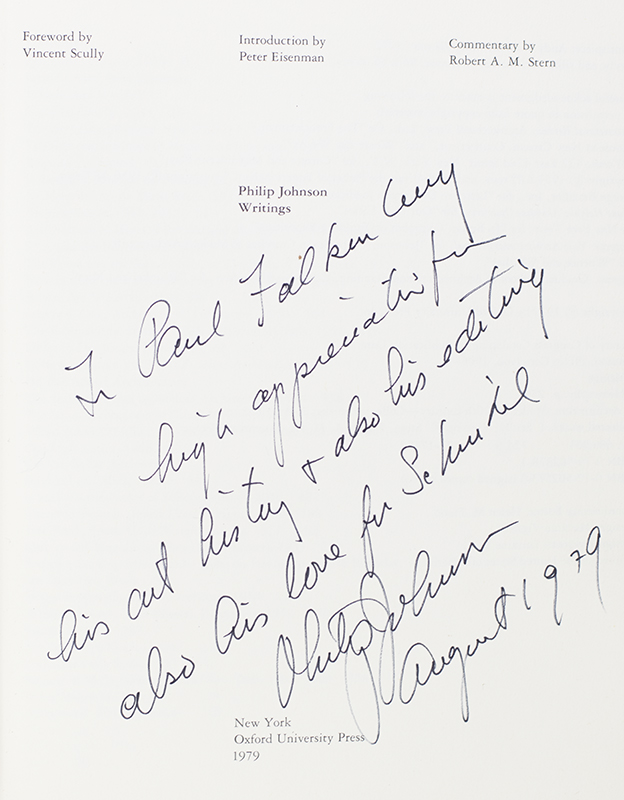 Foreword by
Vincent Scully
Introduction by
Peter Eisenman
Commentary by
Robert A. M. Stern
Philip Johnson
Writings
To Paul Falkenberg
high appreciation for
his art history + also his editing
also his love for Schinkel
Philip Johnson
August 1979
New York
Oxford University Press
1979